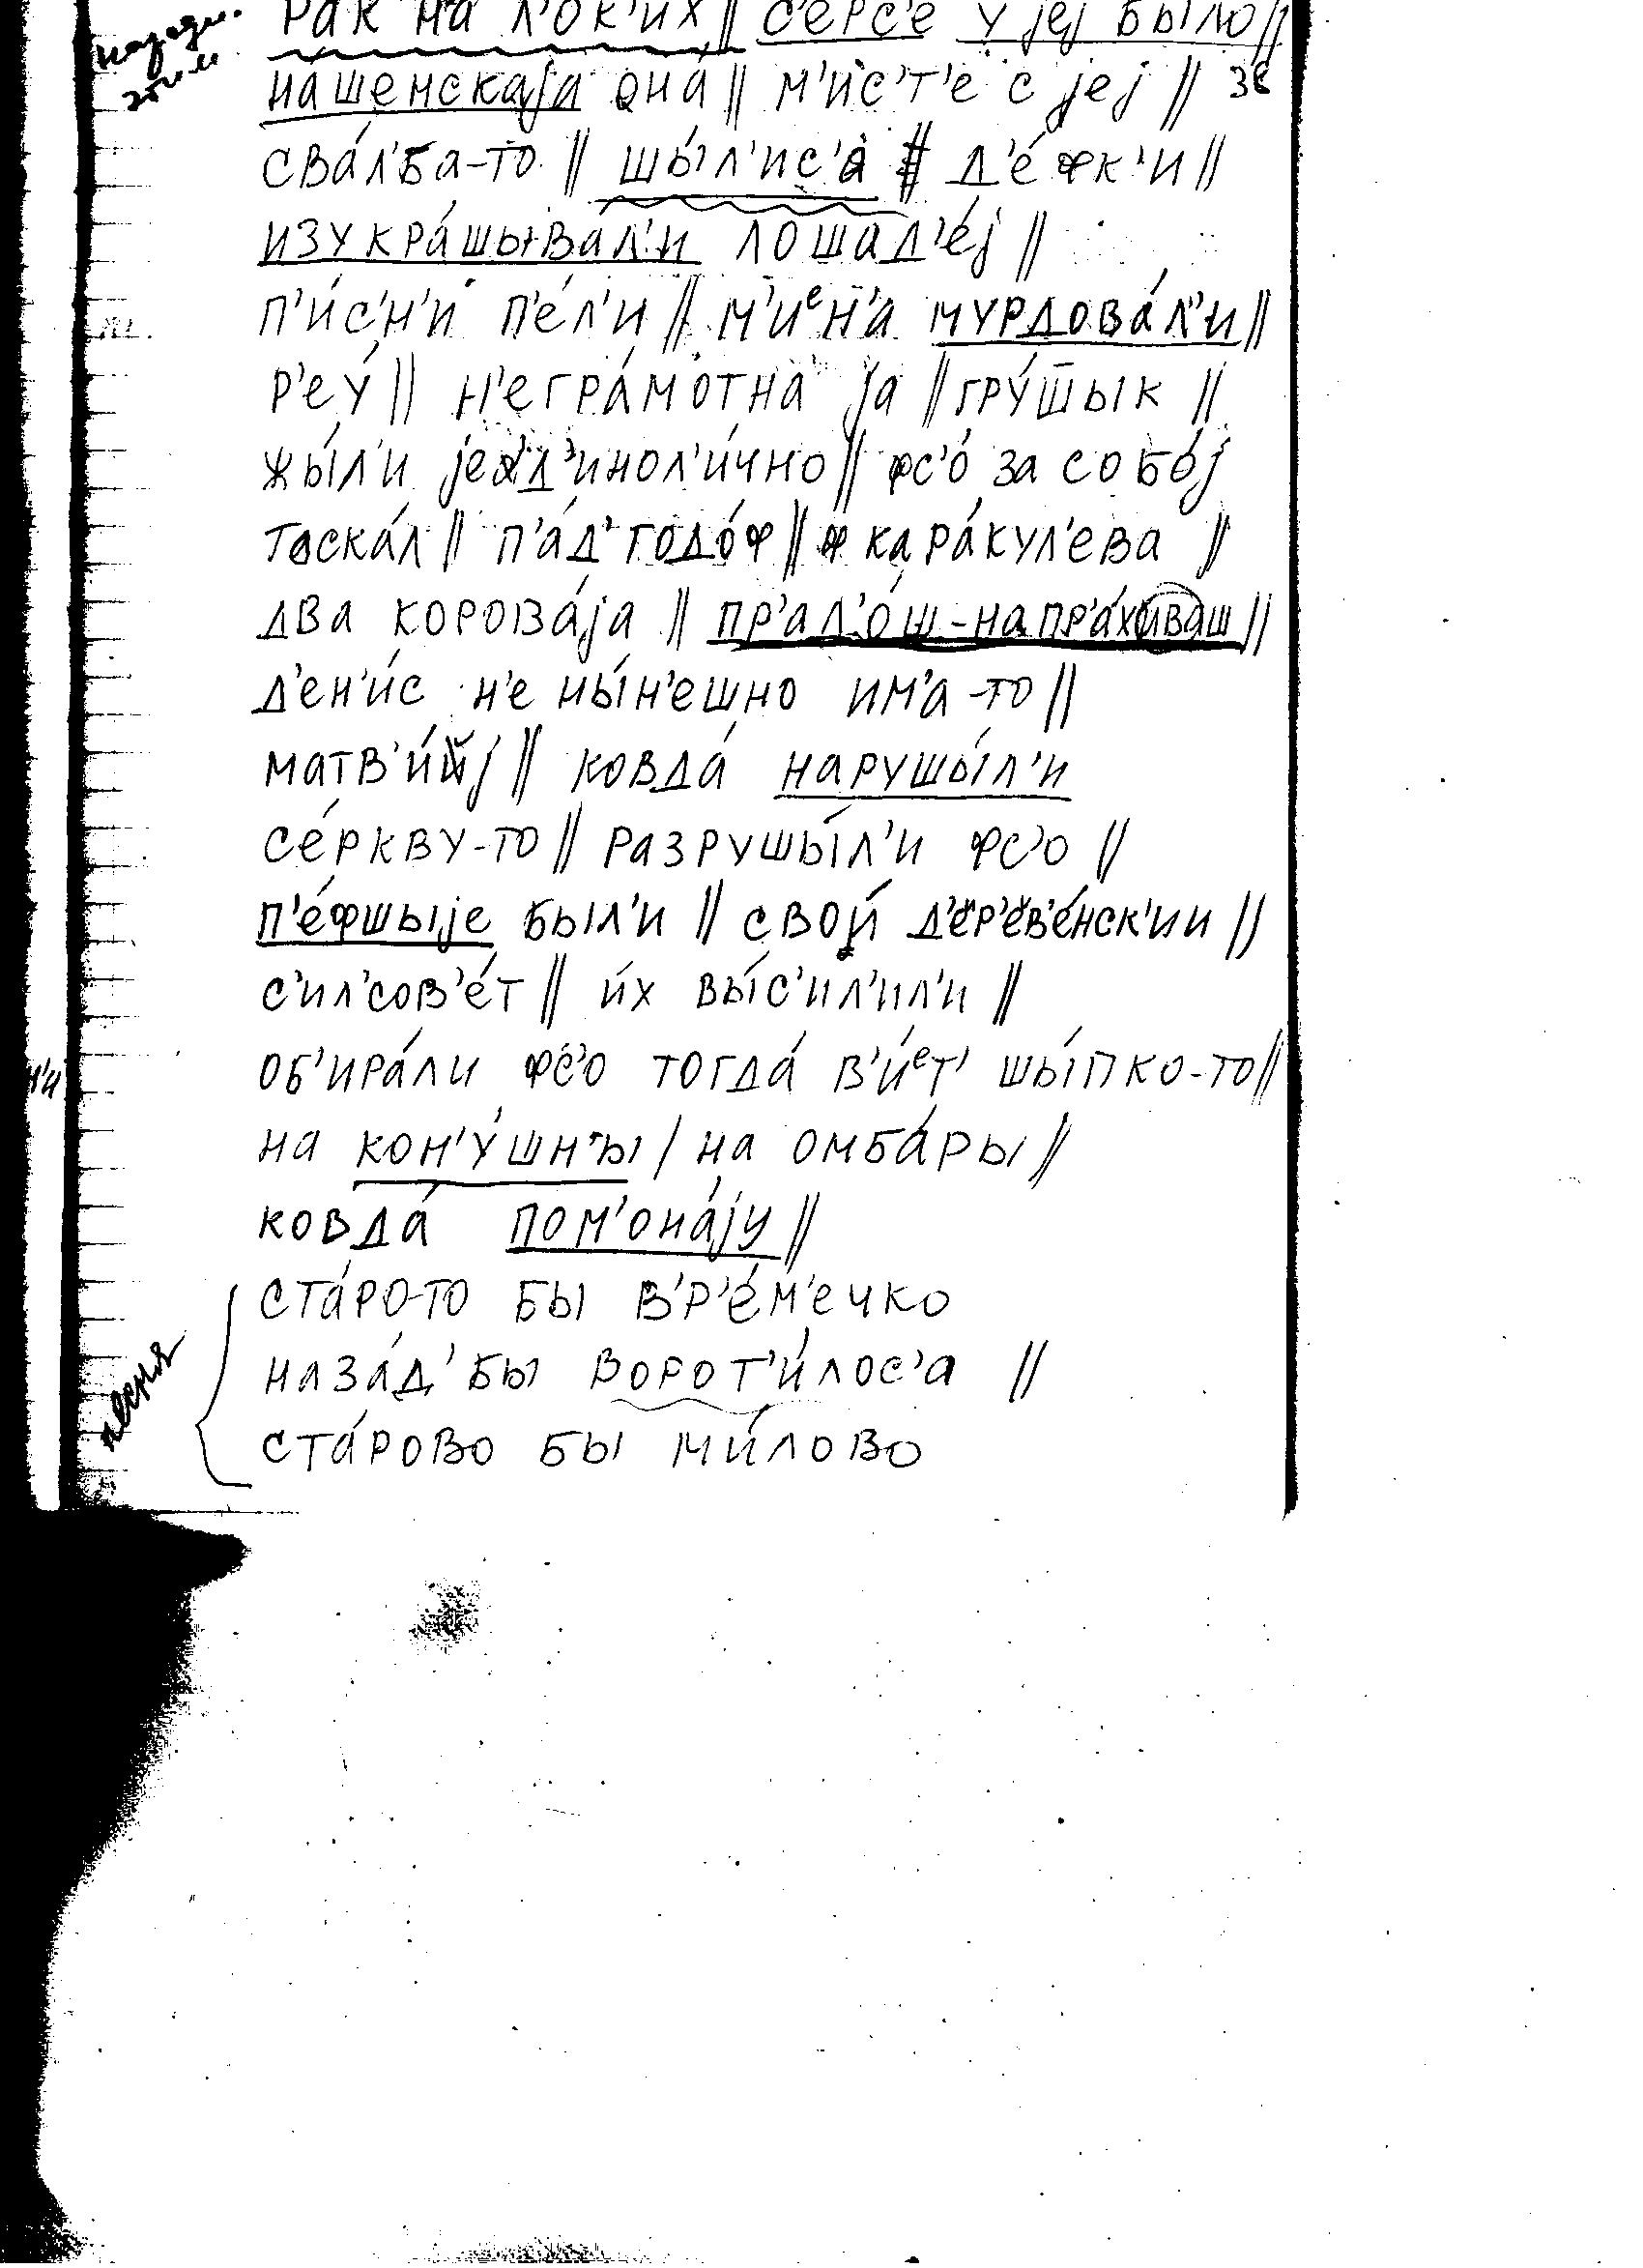 рак на л'ок'их // с'ерс'е у jej было //
на́шенскаjа она́ // м'и́с'т'е с jej // 38
сва́л'ба-то // шы́л'ис'а // д'е́фк'и //
изукра́шывал'и лошад'е́j //
п'и́с'н'и п'е́л'и // м'иᵉн'а мурдова́л'и //
р'еу́ // н'егра́мотна jа // гру́тык //
жы́л'и jед'инол'и́чно // фс'о́ за собо́j
таска́л // п'а́д' годо́ф // ф кара́кул'ева //
два корова́jа // пр'ал'о́ш-напр'а́хиваш //
д'ен'и́с н'е ны́н'ешно им'а-то //
матв'и́j // ковда́ нарушы́л'и
се́ркву-то // разрушы́л'и фс'о //
п'е́фшыjе был'и // свои́ д'ер'ев'е́нск'ии //
с'ил'сов'е́т // и́х вы́с'ил'ил'и //
об'ира́ли фс'о тогда́ в'и́ᵉт' шы́пко-то //
на кон'у́шн'ы / на омба́ры //
ковда́ пом'она́jу //
ста́ро-то бы в'р'е́м'ечко
наза́д' бы ворот'и́лос'а //
ста́рово бы ми́лово
песня